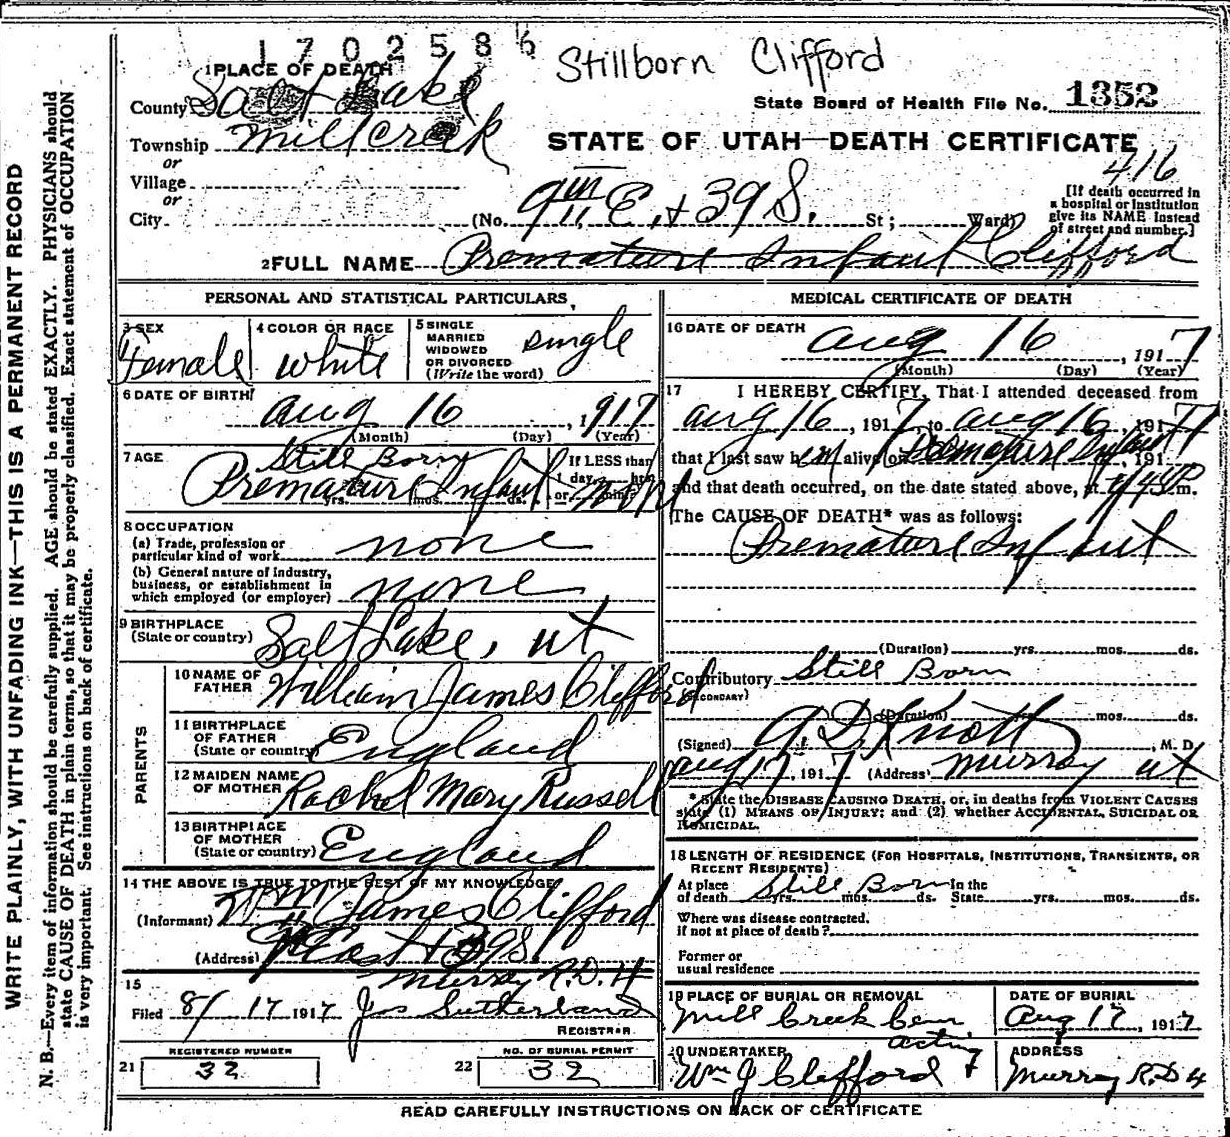 1 7 0 2 5 8 6
Stillborn Clifford
1 PLACE OF DEATH
County Salt Lake
State Board of Health File No. 1352
Township Millcreek
STATE OF UTAH—DEATH CERTIFICATE
or
Village
416
or
City
(No. 9th E. + 39 S. St; Ward)
[If death occurred in
a hospital or institution
give its NAME instead
of street and number.]
2 FULL NAME Premature Infant Clifford
PERSONAL AND STATISTICAL PARTICULARS
3 SEX
Female
4 COLOR OR RACE
White
5 SINGLE
MARRIED
WIDOWED
OR DIVORCED
(Write the word)
single
6 DATE OF BIRTH
Aug 16, 1917
(Month) (Day) (Year)
7 AGE
Still Born
Premature Infant
yrs. mos. ds.
If LESS than
1 day, hrs.
or min.?
8 OCCUPATION
(a) Trade, profession or
particular kind of work none
(b) General nature of industry,
business, or establishment in
which employed (or employer) none
9 BIRTHPLACE
(State or country) Salt Lake, Ut
PARENTS
10 NAME OF
FATHER William James Clifford
11 BIRTHPLACE
OF FATHER
(State or country) England
12 MAIDEN NAME
OF MOTHER Rachel Mary Russell
13 BIRTHPLACE
OF MOTHER
(State or country) England
14 THE ABOVE IS TRUE TO THE BEST OF MY KNOWLEDGE
(Informant) Wm James Clifford
(Address) 9th East + 39 S.
Murray R.D. 4
15
Filed 8/17 1917 Jos Sutherland
REGISTRAR.
REGISTERED NUMBER
21 32
NO. OF BURIAL PERMIT
22 32
MEDICAL CERTIFICATE OF DEATH
16 DATE OF DEATH
Aug 16, 1917
(Month) (Day) (Year)
17 I HEREBY CERTIFY, That I attended deceased from
Aug 16, 1917, to Aug 16, 1917
that I last saw h em alive on Premature Infant, 191
and that death occurred, on the date stated above, at m.
The CAUSE OF DEATH* was as follows:
Premature Infant
(Duration) yrs. mos. ds.
Contributory Still Born
(SECONDARY)
(Duration) yrs. mos. ds.
(Signed) A. D. Knott, M. D.
Aug 17, 1917 (Address) Murray Ut
* State the DISEASE CAUSING DEATH, or, in deaths from VIOLENT CAUSES
state (1) MEANS OF INJURY; and (2) whether ACCIDENTAL, SUICIDAL OR
HOMICIDAL.
18 LENGTH OF RESIDENCE (FOR HOSPITALS, INSTITUTIONS, TRANSIENTS, OR
RECENT RESIDENTS)
At place
of death Still Born yrs. mos. ds.
In the
State yrs. mos. ds.
Where was disease contracted,
if not at place of death?
Former or
usual residence
19 PLACE OF BURIAL OR REMOVAL
Mill Creek Cem
DATE OF BURIAL
Aug 17, 1917
20 UNDERTAKER acting
Wm J Clifford
ADDRESS
Murray R.D 4
READ CAREFULLY INSTRUCTIONS ON BACK OF CERTIFICATE
WRITE PLAINLY, WITH UNFADING INK—THIS IS A PERMANENT RECORD
N. B.—Every item of information should be carefully supplied. AGE should be stated EXACTLY. PHYSICIANS should
state CAUSE OF DEATH in plain terms, so that it may be properly classified. Exact statement of OCCUPATION
is very important. See instructions on back of certificate.